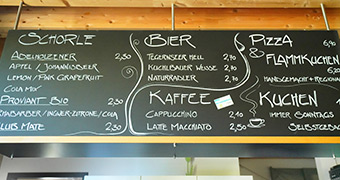 Schorle
Adelholzener 2,30
Apfel / Johannisbeer
Lemon / Pink Grapefruit
Cola Mix
Proviant Bio
Rhabarber / Ingwer-Zitrone / Cola
Club Mate 2,30
Bier
Tegernseer Hell 2,70
Kuchlbauer Weisse 2,90
Naturradler 2,70
Kaffee
Cappucchino 2,40
Latte Macchiato 2,50
Pizza 6,90
& Flammkuchen
Handgemacht + Regional
Kuchen
Immer Sonntags
Selbstgeba